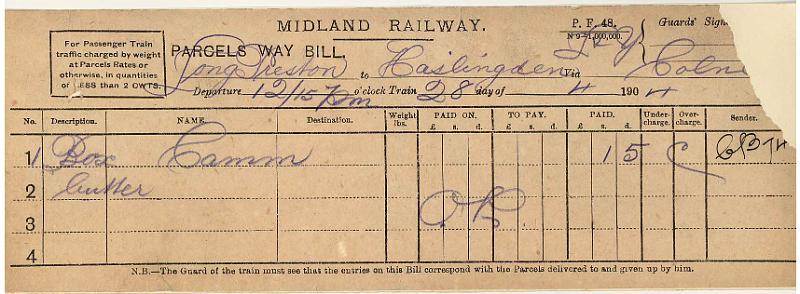 MIDLAND RAILWAY.
P. F. 48.
N 9—1,000,000.
Guards' Sign
For Passenger Train
traffic charged by weight
at Parcels Rates or
otherwise, in quantities
of LESS than 2 CWTS.
PARCELS WAY BILL.
L&Y
Long Preston to Haslingden Via Colne
Departure 12/15 pm o'clock Train 28 day of 4 1904
No. Description. NAME. Destination. Weight lbs. PAID ON. £ s. d. TO PAY. £ s. d. PAID. £ s. d. Under-charge. Over-charge. Sender.
1 1 Box Camm 1 5 C
2 butter
OR
3
4
N.B.—The Guard of the train must see that the entries on this Bill correspond with the Parcels delivered to and given up by him.